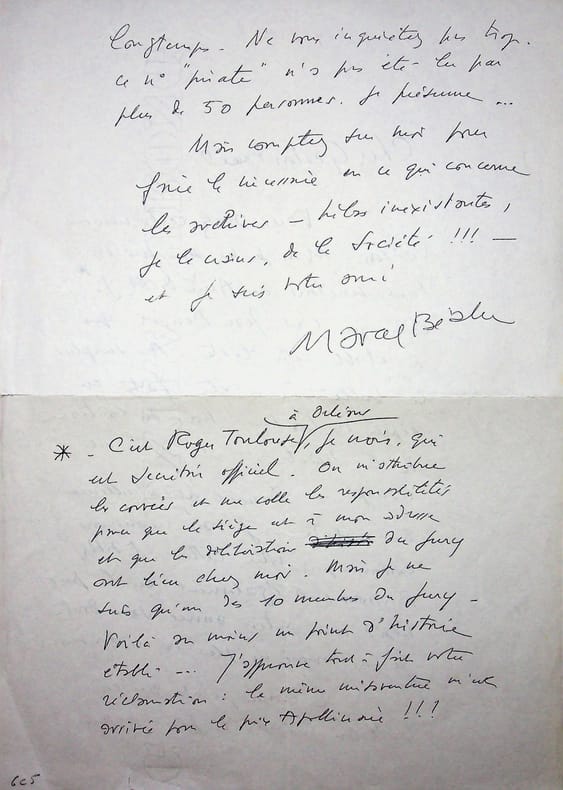 longtemps. Ne vous inquiétez pas trop.
ce n° "pirate" n'a pas été lu par
plus de 50 personnes. Je présume ...
Mais comptez sur moi pour
faire le nécessaire en ce qui concerne
les archives — hélas inexistantes,
je le crains, de la Société !!! —
et je suis votre ami
Marcel Béalu
à Orléans
* - C'est Roger Toulouse, je crois, qui
est secrétaire officiel. On m'attribue
les corvées et me colle les responsabilités
parce que le siège est à mon adresse
et que les délibérations du Jury
ont lieu chez moi. Mais je ne
suis qu'un des 10 membres du Jury -
Voilà au moins un point d'histoire
établi ... J'approuve tout à fait votre
réclamation : la même mésaventure m'est
arrivée pour le prix Apollinaire !!!